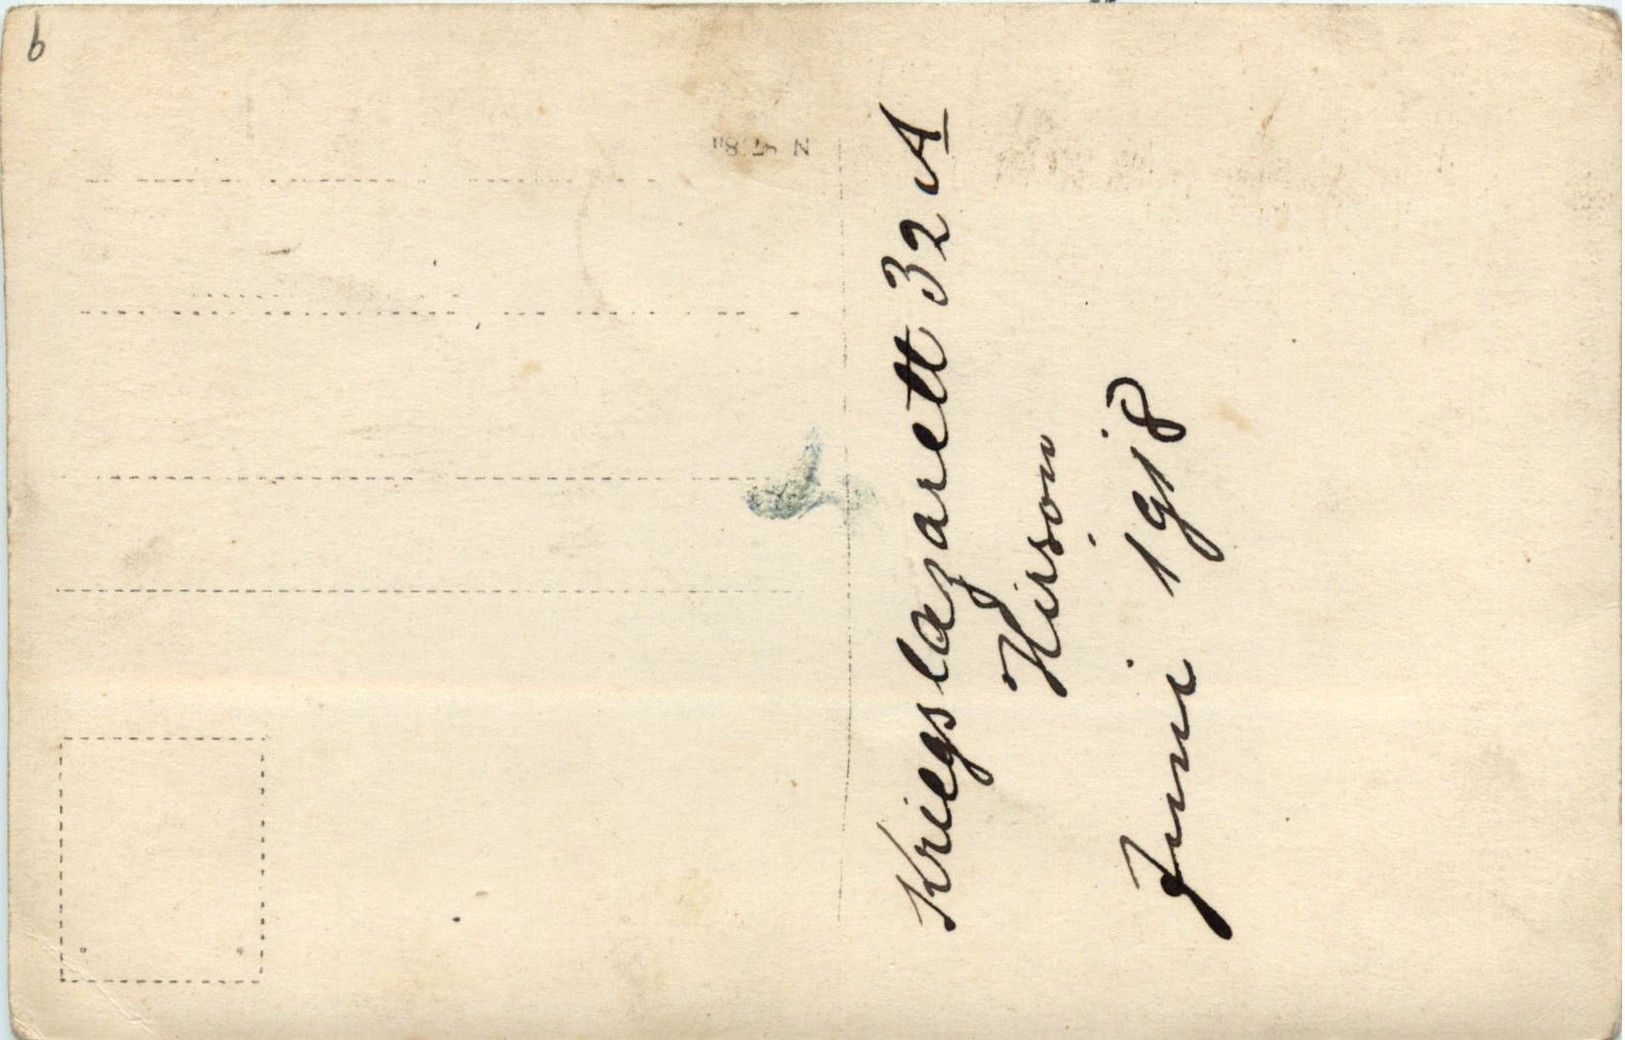 Kriegslazarett 32 A
Hirson
Juni 1918